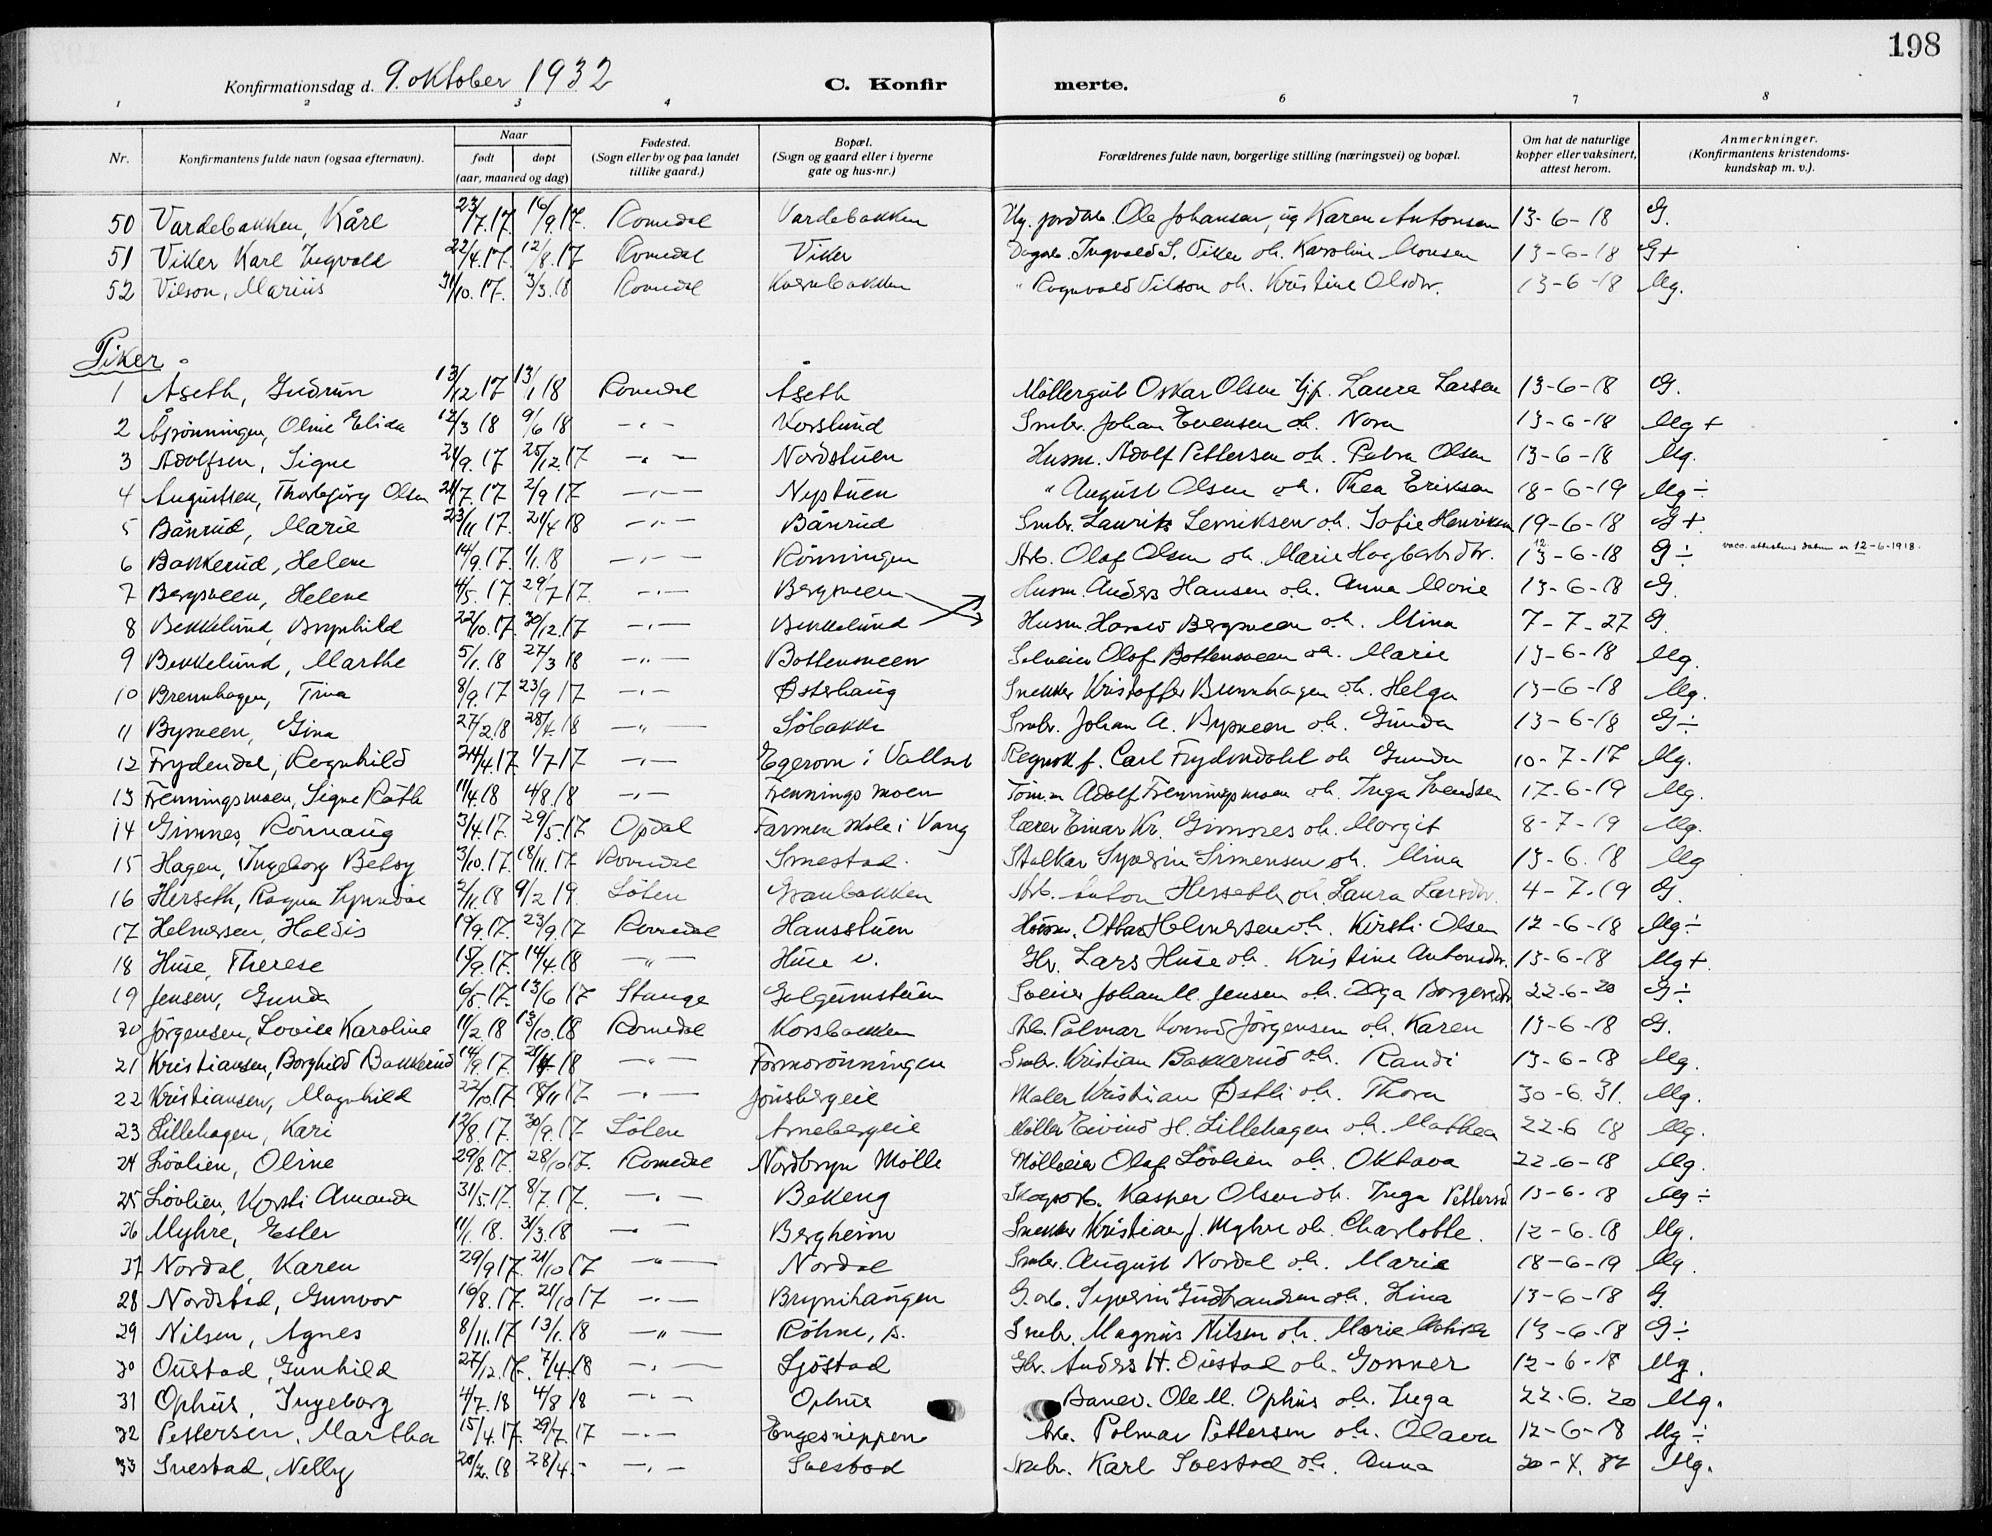 198
Konfirmationsdag d. 9. oktober 1932 C. Konfirmerte.
1 2 3 4 6 7 8
Nr. Konfirmantens fulde navn (ogsaa efternavn). Naar født døpt (aar, maaned og dag) Fødested. (Sogn eller by og paa landet tillike gaard.) Bopæl. (Sogn og gaard eller i byerne gate og hus-nr.) Forældrenes fulde navn, borgerlige stilling (næringsvei) og bopæl. Om hat de naturlige kopper eller vaksinert, attest herom. Anmerkninger. (Konfirmantens kristendomskundskap m. v.).
50 Vardebakken, Kåre 23/7.17. 16/9.17. Romedal Vardebakken Ole Johansen, ug Karen Antonsen 13-6-18 G.
51 Viker Karl Ingvald 22/4.17. 12/8.17 Romedal Viker Dagarb. Ingvald S. Viker oh. Karoline Monsen 13-6-18 G+
52 Vilson, Marius 31/10.17. 3/3.18 Romedal Kvernbakken " Rognvald Vilson oh. Kristine Olsdtr. 13-6-18 Mg.
Piker
1 Åseth, Gudrun 13/12 17 13/1 18 Romedal Åseth Møllergut Oskar Olsen Gjp. Laura Larsen 13-6-18 G.
2 Åsrønningen, Oline Elida 12/3 18 9/6 18 -"- Korslund Smbr. Johan Evensen oh. Nora 13-6-18 Mg+
3 Adolfsen, Signe 21/9.17 25/12.17 -"- Nordstuen Husm. Adolf Pettersen oh. Petra Olsen 13-6-18 Mg.
4 Augustsen, Thorbjörg Olsen 21/7.17 2/9 17 -"- Nystuen " August Olsen oh. Thea Eriksen 18-6-19 Mg÷
5 Bånrud, Marie 23/11 17. 21/4 18 -"- Bånrud Smbr. Laurits Lemiksen oh. Sofie Henriksen 19-6-18 G+
6 Bakkerud, Helene 14/9.17. 1/1.18 -"- Rönningen Arb. Olaf Olsen oh. Marie Hagbartsdtr. 13-6-18 G÷ vacc. attestens datum er 12-6-1918.
7 Bergsveen, Helene 4/5.17. 29/7 17. -"- Bergsveen Husm. Anders Hansen oh. Anna Marie 13-6-18 G.
8 Bekkelund, Brynhild 22/10.17. 30/12.17 -"- Bekkelund Husm. Harald Bergsveen oh. Mina 7-7-27 G.
9 Bekkelund, Marthe 5/1.18 27/3 18 -"- Bottensveen Selveier Olaf Bottensveen oh. Marie 13-6-18 Mg.
10 Brennhagen, Tina 8/9.17 23/9 17 -"- Østerhaug Snekker Kristoffer Brennhagen oh. Helga 13-6-18 Mg.
11 Bysveen, Gina 27/2.18 28/4.18 -"- Söbakke Smbr. Johan A. Bysveen oh. Gunda 13-6-18 G÷
12 Frydendal, Ragnhild 24/4.17 1/7 17 -"- Egerom i Vallset Regnsk f. Carl Frydendahl oh Gunda 10-7-17 Mg.
13 Frenningsmoen, Signe Ruth 11/4.18 4/8.18 -"- Frennings moen Töm.m Adolf Frenningsmoen oh. Inga Svendsen 17-6-19 Mg.
14 Gimnes, Rönnaug 3/4.17. 29/5-17 Opdal Farmen skole i Vang Lærer Einar Kr. Gimnes oh. Margit 8-7-19 Mg.
15 Hagen, Ingeborg Betsy 3/10.17. 18/11.17 Romedal Smestad. Stalkar Syverin Simensen oh. Mina 13-6.18 Mg
16 Herseth, Ragna Synnöve 2/11.18 9/2 19. Löten Granbakken Arb. Anton Herseth oh. Laura Larsdtr. 4-7.19 G.
17 Helmersen, Haldis 19/9.17. 23/9.17 Romedal Hansstuen Husm. Ottar Helmersen oh. Kirsti Olsen 12-6-18 Mg÷
18 Huse, Therese 15/9.17. 14/4.18 -"- Huse v. Gbr. Lars Huse oh. Kristine Antonsdtr. 13-6-18 Mg+
19 Jensen, Gunda 6/5-17. 13/6 17 Stange Golgumstuen Sveiser Johan M. Jensen oh. Olga Borgersdtr 22-6-20 G÷
20 Jörgensen, Lovise Karoline 11/2.18 13/10.18 Romedal Korsbakken Arb. Palmar Konrad Jörgensen oh. Karen 13-6-18 G.
21 Kristiansen, Borghild Bakkerud 14/9.17. 21/4-18 -"- Formorönningen Smbr. Kristian Bakkerud oh. Randi 13-6-18 Mg.
22 Kristiansen, Magnhild 22/10.17 18/11 17 -"- Jönsbergeie Maler Kristian Østli oh. Thora 30-6.31. Mg.
23 Lillehagen, Kari 12/8.17. 30/9.17 Löten Arnebergeie Möller Eivind H. Lillehagen oh. Mathea 22-6 18 Mg.
24 Lövlien, Oline 29/8.17. 28/10 17. Romedal Nordbryn Mölle Mölleeier Olaf Lövlien oh. Oktava 22-6-18 Mg.
25 Lövlien, Kjersti Amanda 31/5.17. 8/7.17. -"- Bekeng Skogsarb. Kasper Olsen oh. Inga Pettersd 13-6-18 Mg÷
26 Myhre, Ester 11/1.18. 31/3.18 -"- Bergheim Snekker Kristian J. Myhre oh. Charlotte. 12-6.18 Mg.
27 Nordal, Karen 29/9 17. 21/10 17 -"- Nordal Smbr. August Nordal oh. Marie 18-6-19 Mg.
28 Nordstad, Gunvor 16/8.17. 21/10 17 -"- Brynihaugen G.arb. Syverin Gudbrandsen oh. Lina 13-6-18 G.
29 Nilsen, Agnes 8/11.17 13/1.18 -"- Röhne, s. Smbr. Magnus Nilsen oh. Marie 13-6-18 G÷
30 Oustad, Gunhild 27/12.17. 7/4.18 -"- Sjöstad Gbr. Anders H. Oustad oh. Gonner 12-6-18 Mg.
31 Ophus, Ingeborg 4/7.18 4/8 18 -"- Ophus Banev. Ole M. Ophus oh. Inga 22-6.20 Mg.
32 Pettersen, Martha 15/4.17. 29/7.17 -"- Engesnippen Arb. Palmar Pettersen oh. Olava 12-6-18 Mg÷
33 Svestad, Nelly 20/2.18 28/4.- -"- Svestad Smbr. Karl Svestad oh. Anna 20-X. 32 Mg.